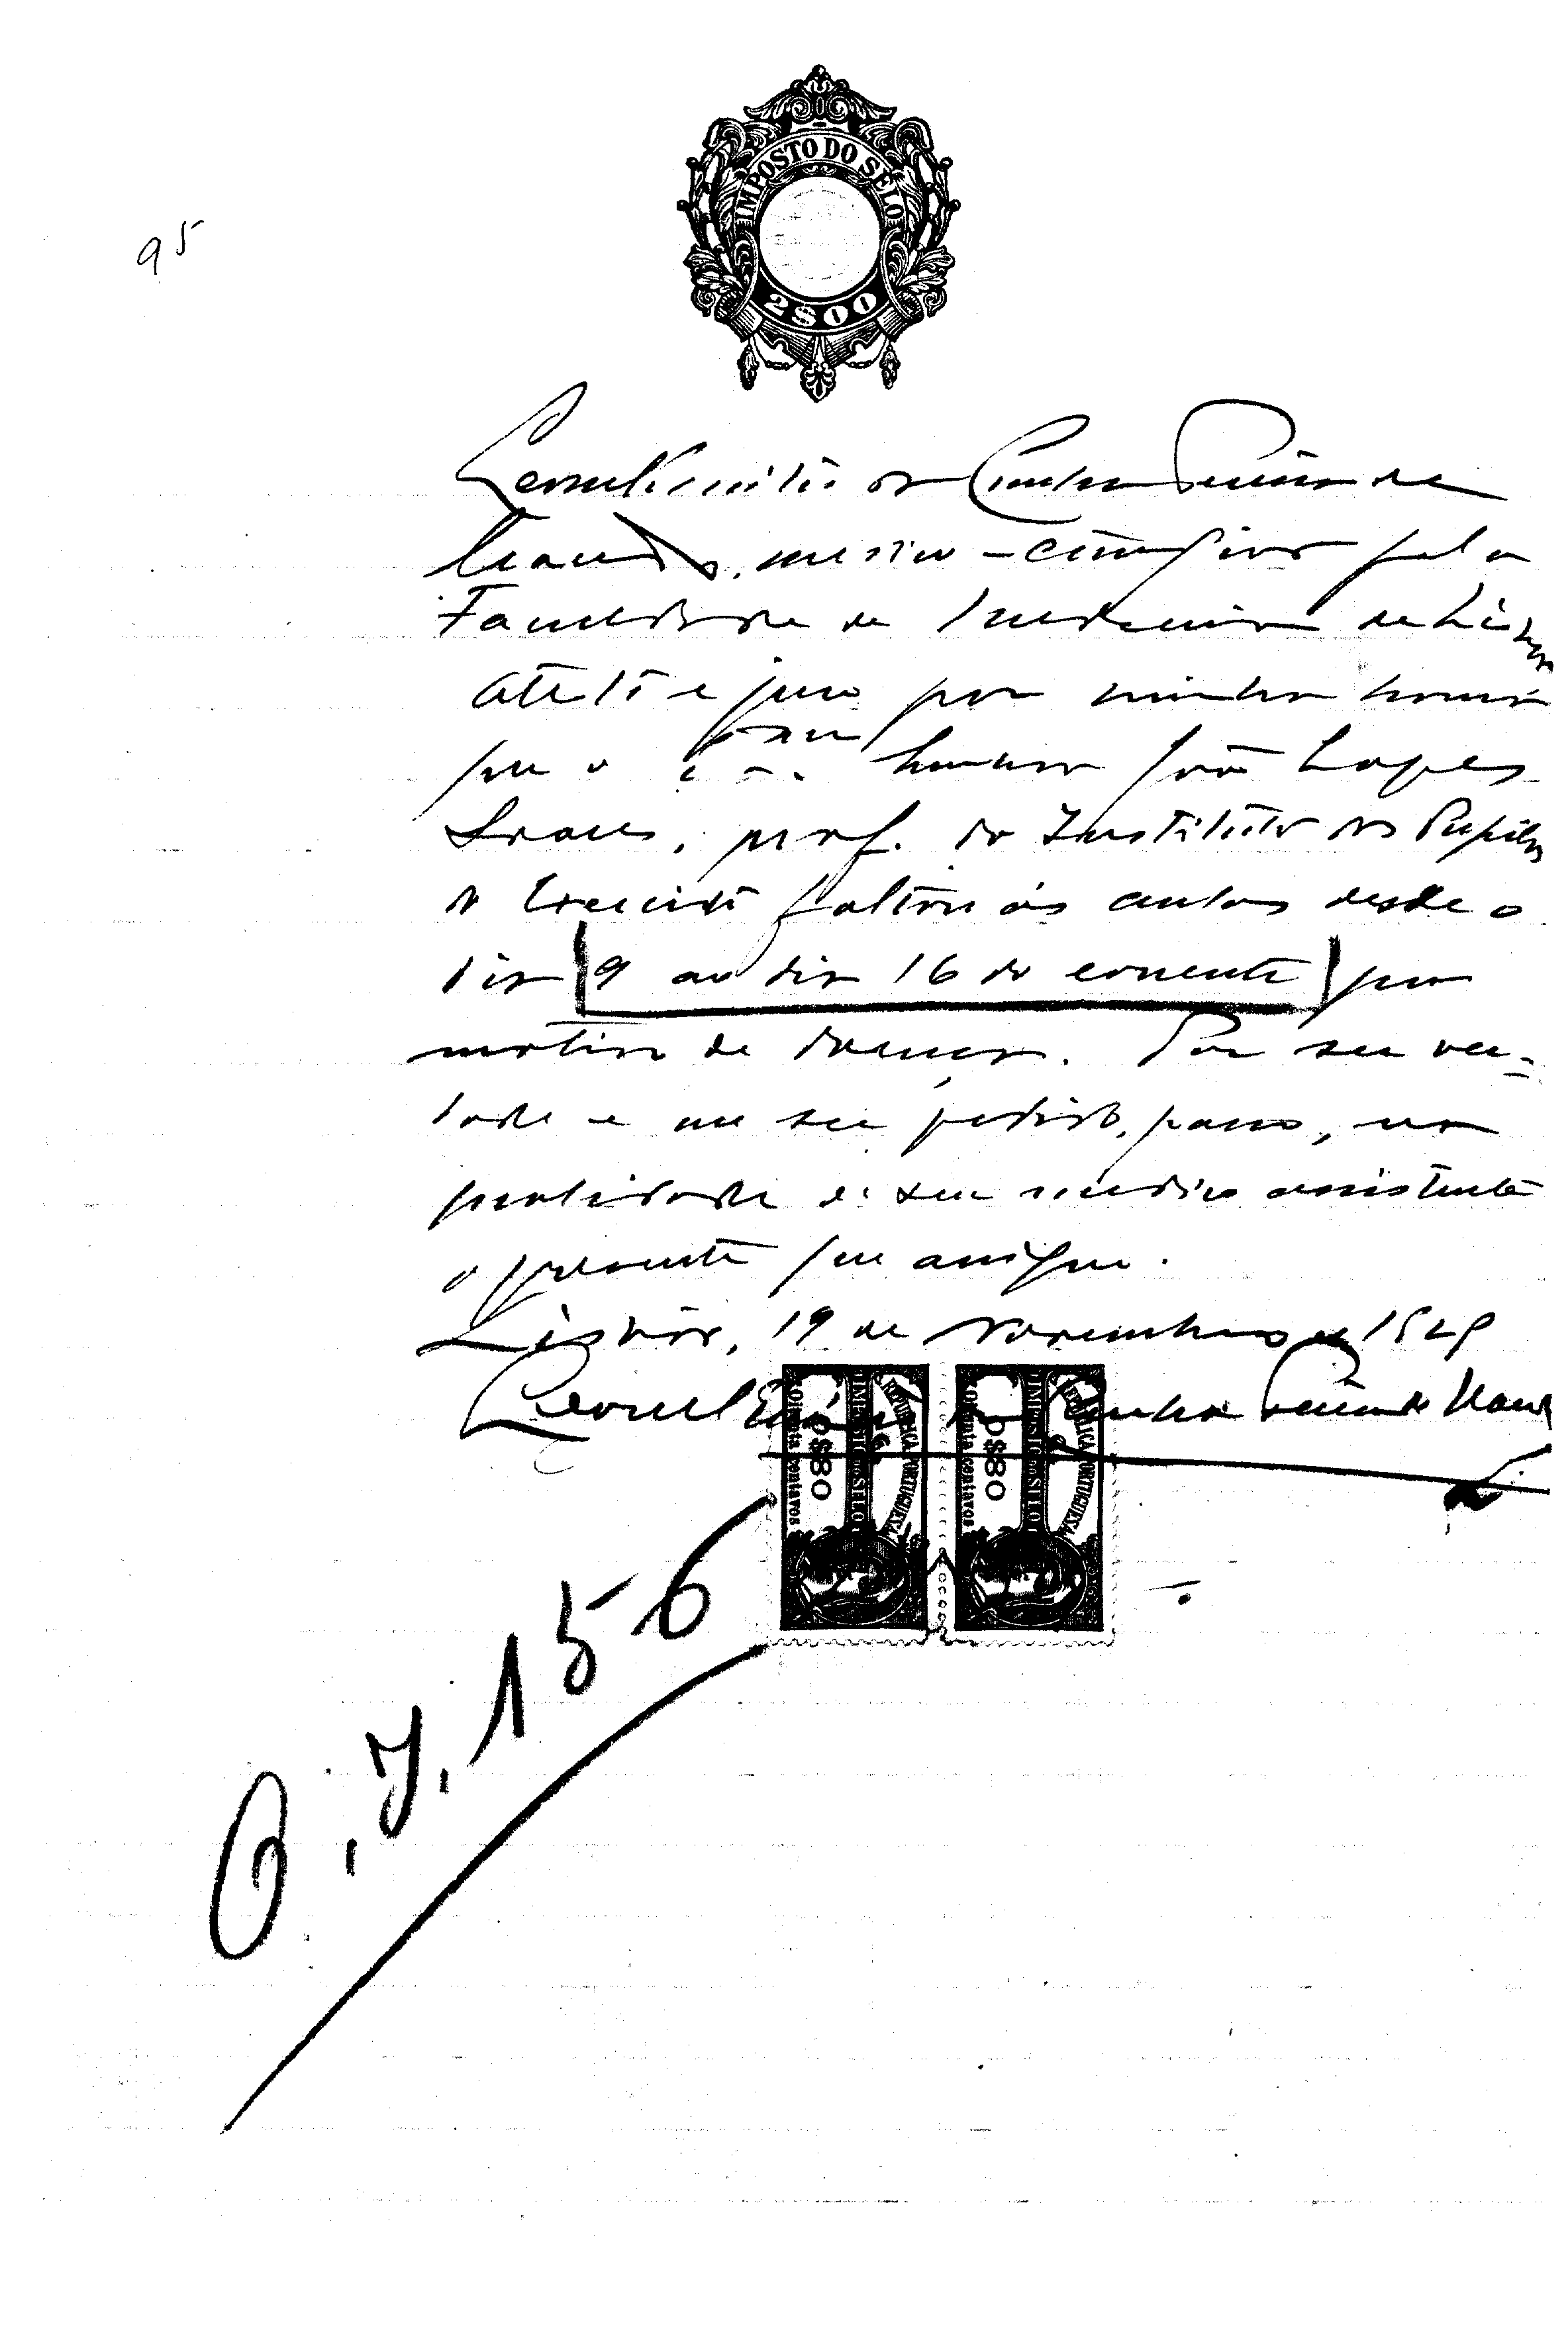 IMPOSTO DO SELO
2$00
95
da Cunha
medico-cirurgião pela
Faculdade de Medicina de Lisboa
Atesto e juro por minha honra
que o João Lopes
Soares, prof. do Instituto dos Pupilos
do Exercito faltou ás aulas desde o
dia 9 ao dia 16 do corrente por
motivo de doença. Por ser ver-
dade e me ser pedido, passo, na
qualidade de seu medico assistente
o presente que assigno.
Lisboa, 19 de Novembro de
da Cunha
REPUBLICA PORTUGUESA
IMPOSTO DO SELO
0$80
Oitenta centavos
REPUBLICA PORTUGUESA
IMPOSTO DO SELO
0$80
Oitenta centavos
156